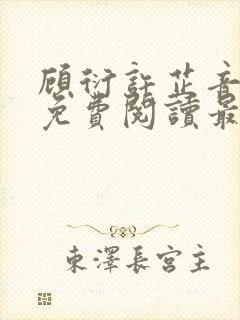 顾衍許芷音
免費閱讀最
東澤長宮主